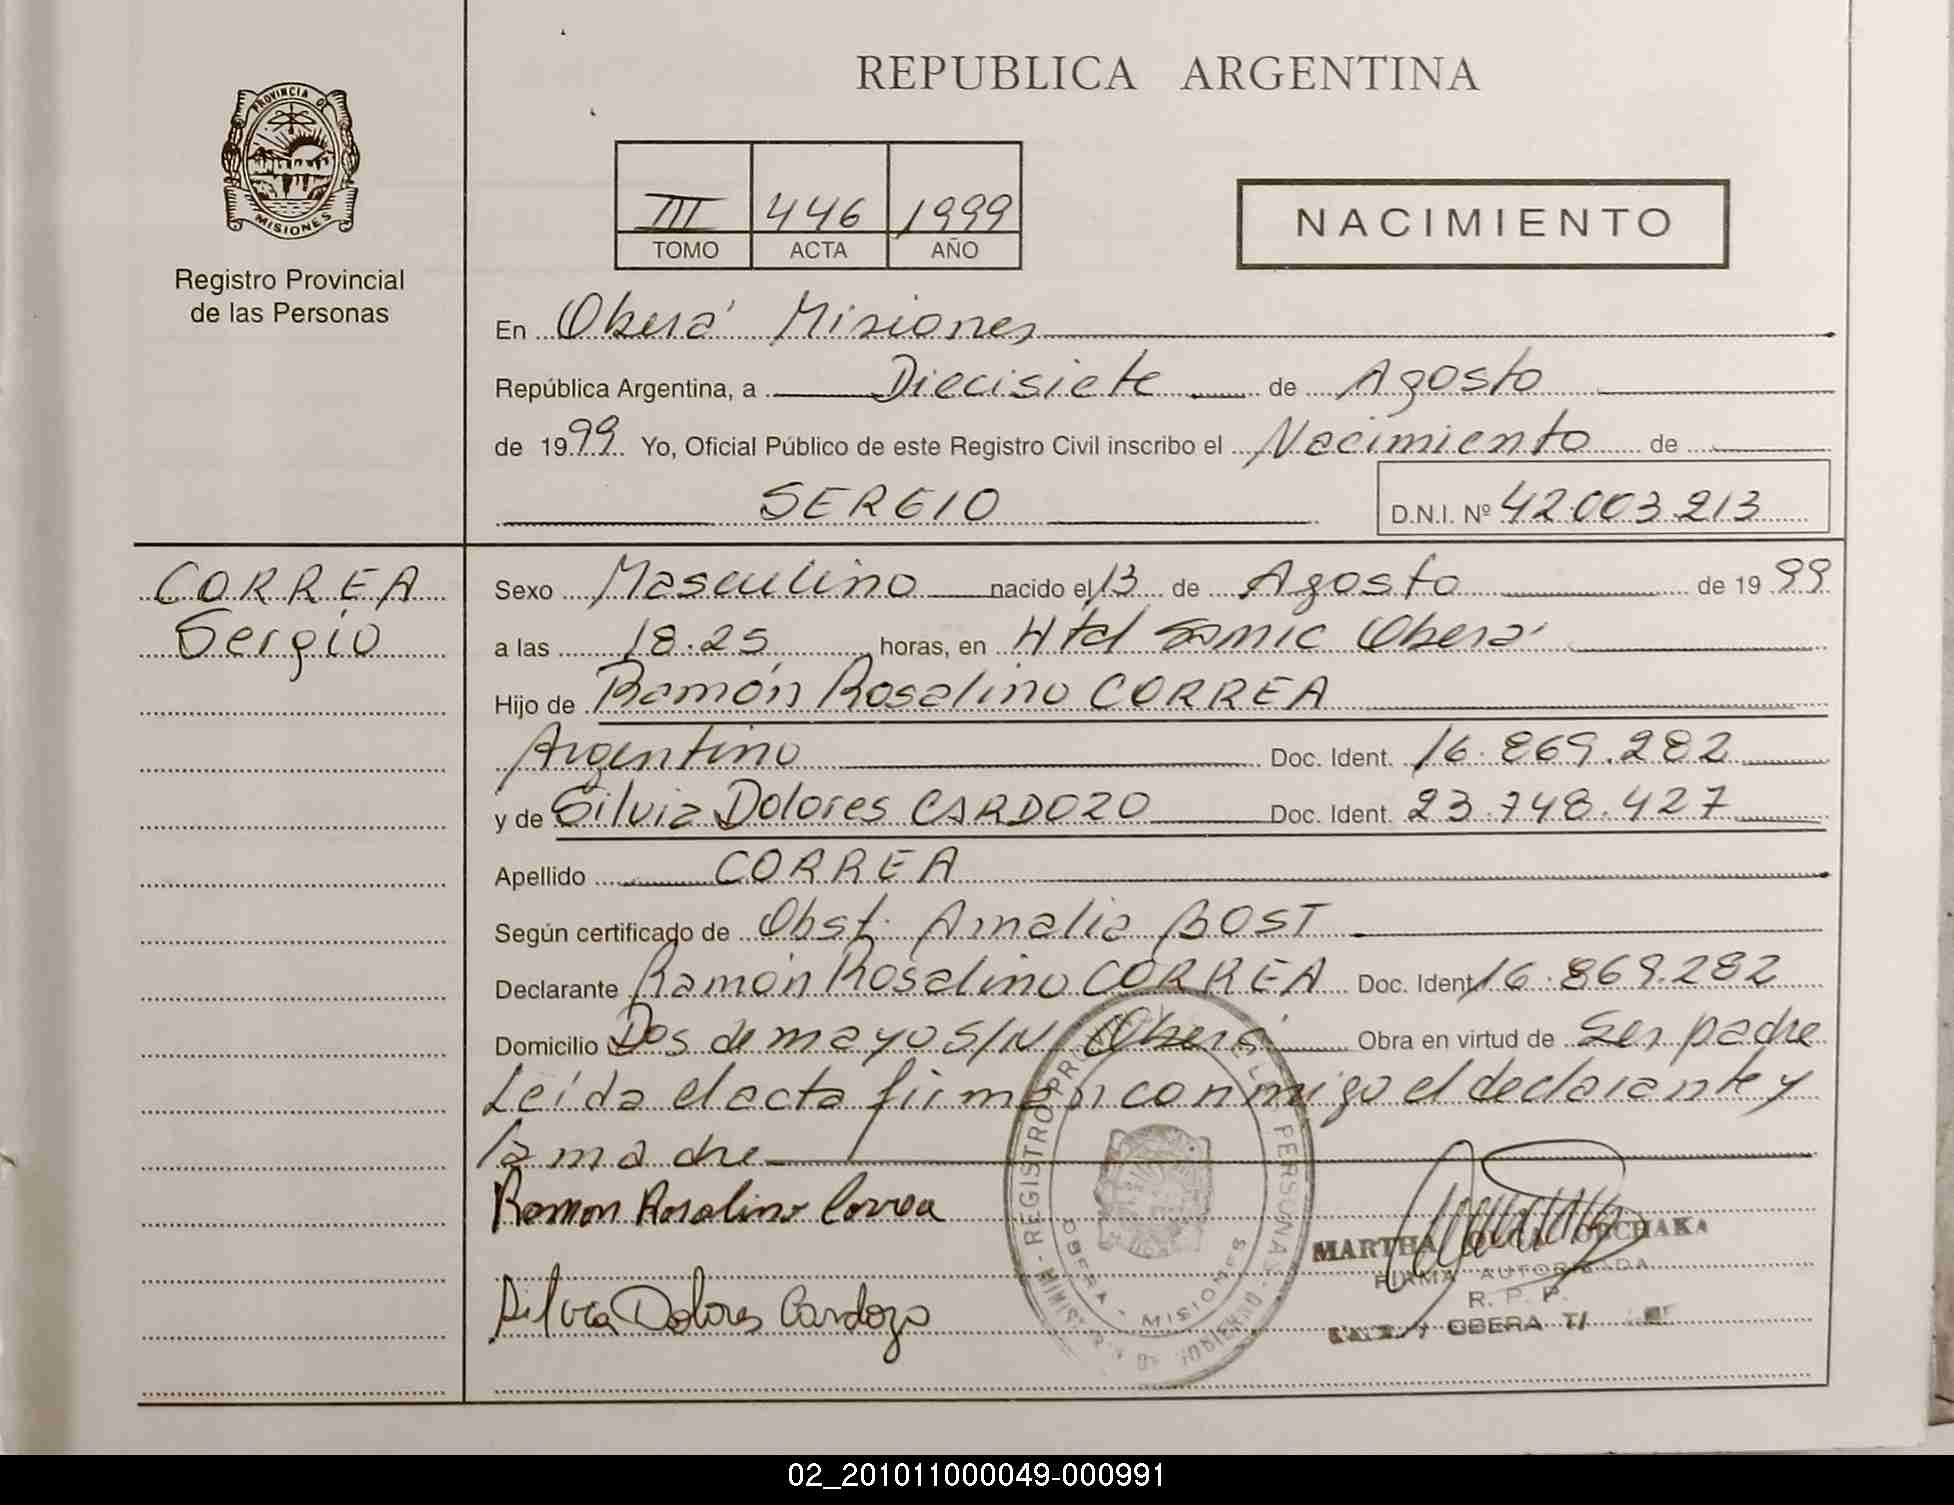 REPUBLICA ARGENTINA
PROVINCIA DE
MISIONES
Registro Provincial
de las Personas
III 446 1999
TOMO ACTA AÑO
NACIMIENTO
En Oberá Misiones
República Argentina, a Diecisiete de Agosto
de 1999 Yo, Oficial Público de este Registro Civil inscribo el Nacimiento de
SERGIO D.N.I. Nº 42.003.213
CORREA
Sergio
Sexo Masculino nacido el 13 de Agosto de 1999
a las 18.25 horas, en Htal Samic Oberá
Hijo de Ramón Rosalino CORREA
Argentino Doc. Ident. 16.869.282
y de Silvia Dolores CARDOZO Doc. Ident. 23.748.427
Apellido CORREA
Según certificado de Obst. Amalia BOST
Declarante Ramón Rosalino CORREA Doc. Ident. 16.869.282
Domicilio Dos de mayo S/N Oberá Obra en virtud de Ser padre
Leída el acta firman conmigo el declarante y
la madre
Ramon Rosalino Correa
Silvia Dolores Cardozo
REGISTRO PERSONAS
OBERA - MISIONES
MARTHA
FIRMA AUTORIZADA
R. P. P.
OBERA
02_201011000049-000991